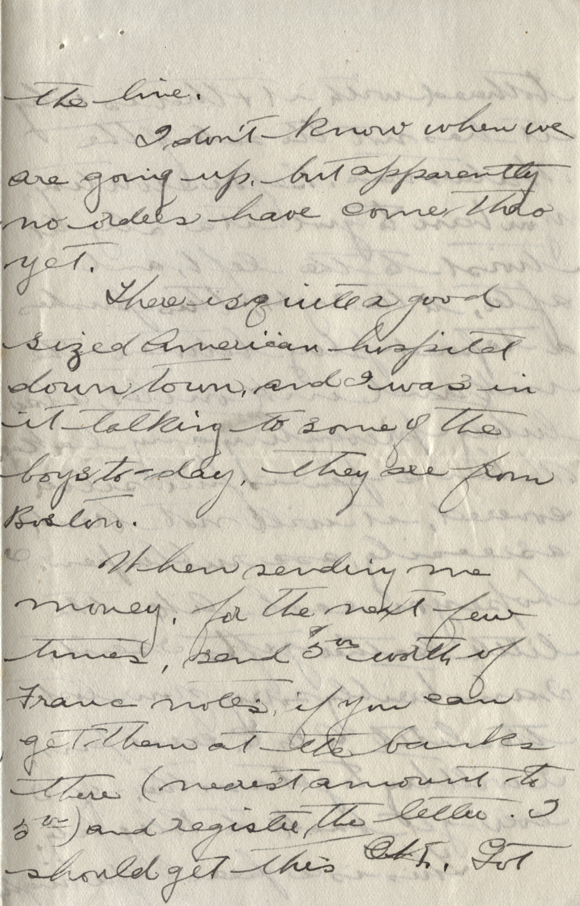 the line.
I don't know when we
are going up, but apparently
no orders have come thro
yet.
There is quite a good
sized American hospital
down town, and I was in
it talking to some of the
boys to-day, they are from
Boston.
When sending me
money, for the next few
times, send $5.00 worth of
Franc notes, if you can
get them at the banks
there (nearest amount to
5.00) and register the letter. I
should get this O.K. Got